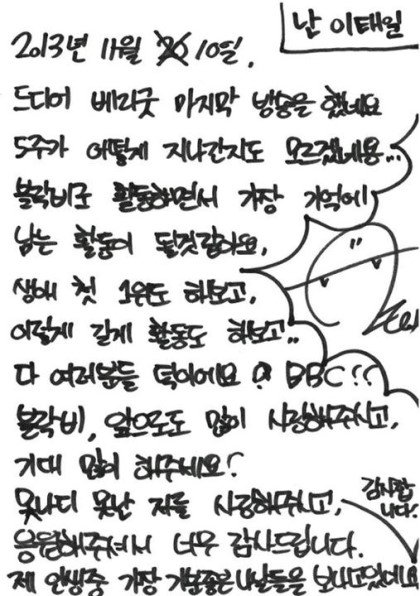 난 이태일
2013년 11월 10일.
드디어 베리굿 마지막 방송을 했네요
5주가 어떻게 지나간지도 모르겠네용...
블락비로 활동하면서 가장 기억에
남는 활동이 될것같아요,
생애 첫 1위도 하보고,
이렇게 길게 활동도 하보고..
다 여러분들 덕이에요 BBC!!
블락비, 앞으로도 많이 사랑해주시고,
기대 많이 해주세요!
못나디 못난 저를 사랑해주시고,
감사합
니다!
응원해주셔서 너무 감사드립니다.
제 인생중 가장 기분좋은 나날들을 보내고있어요